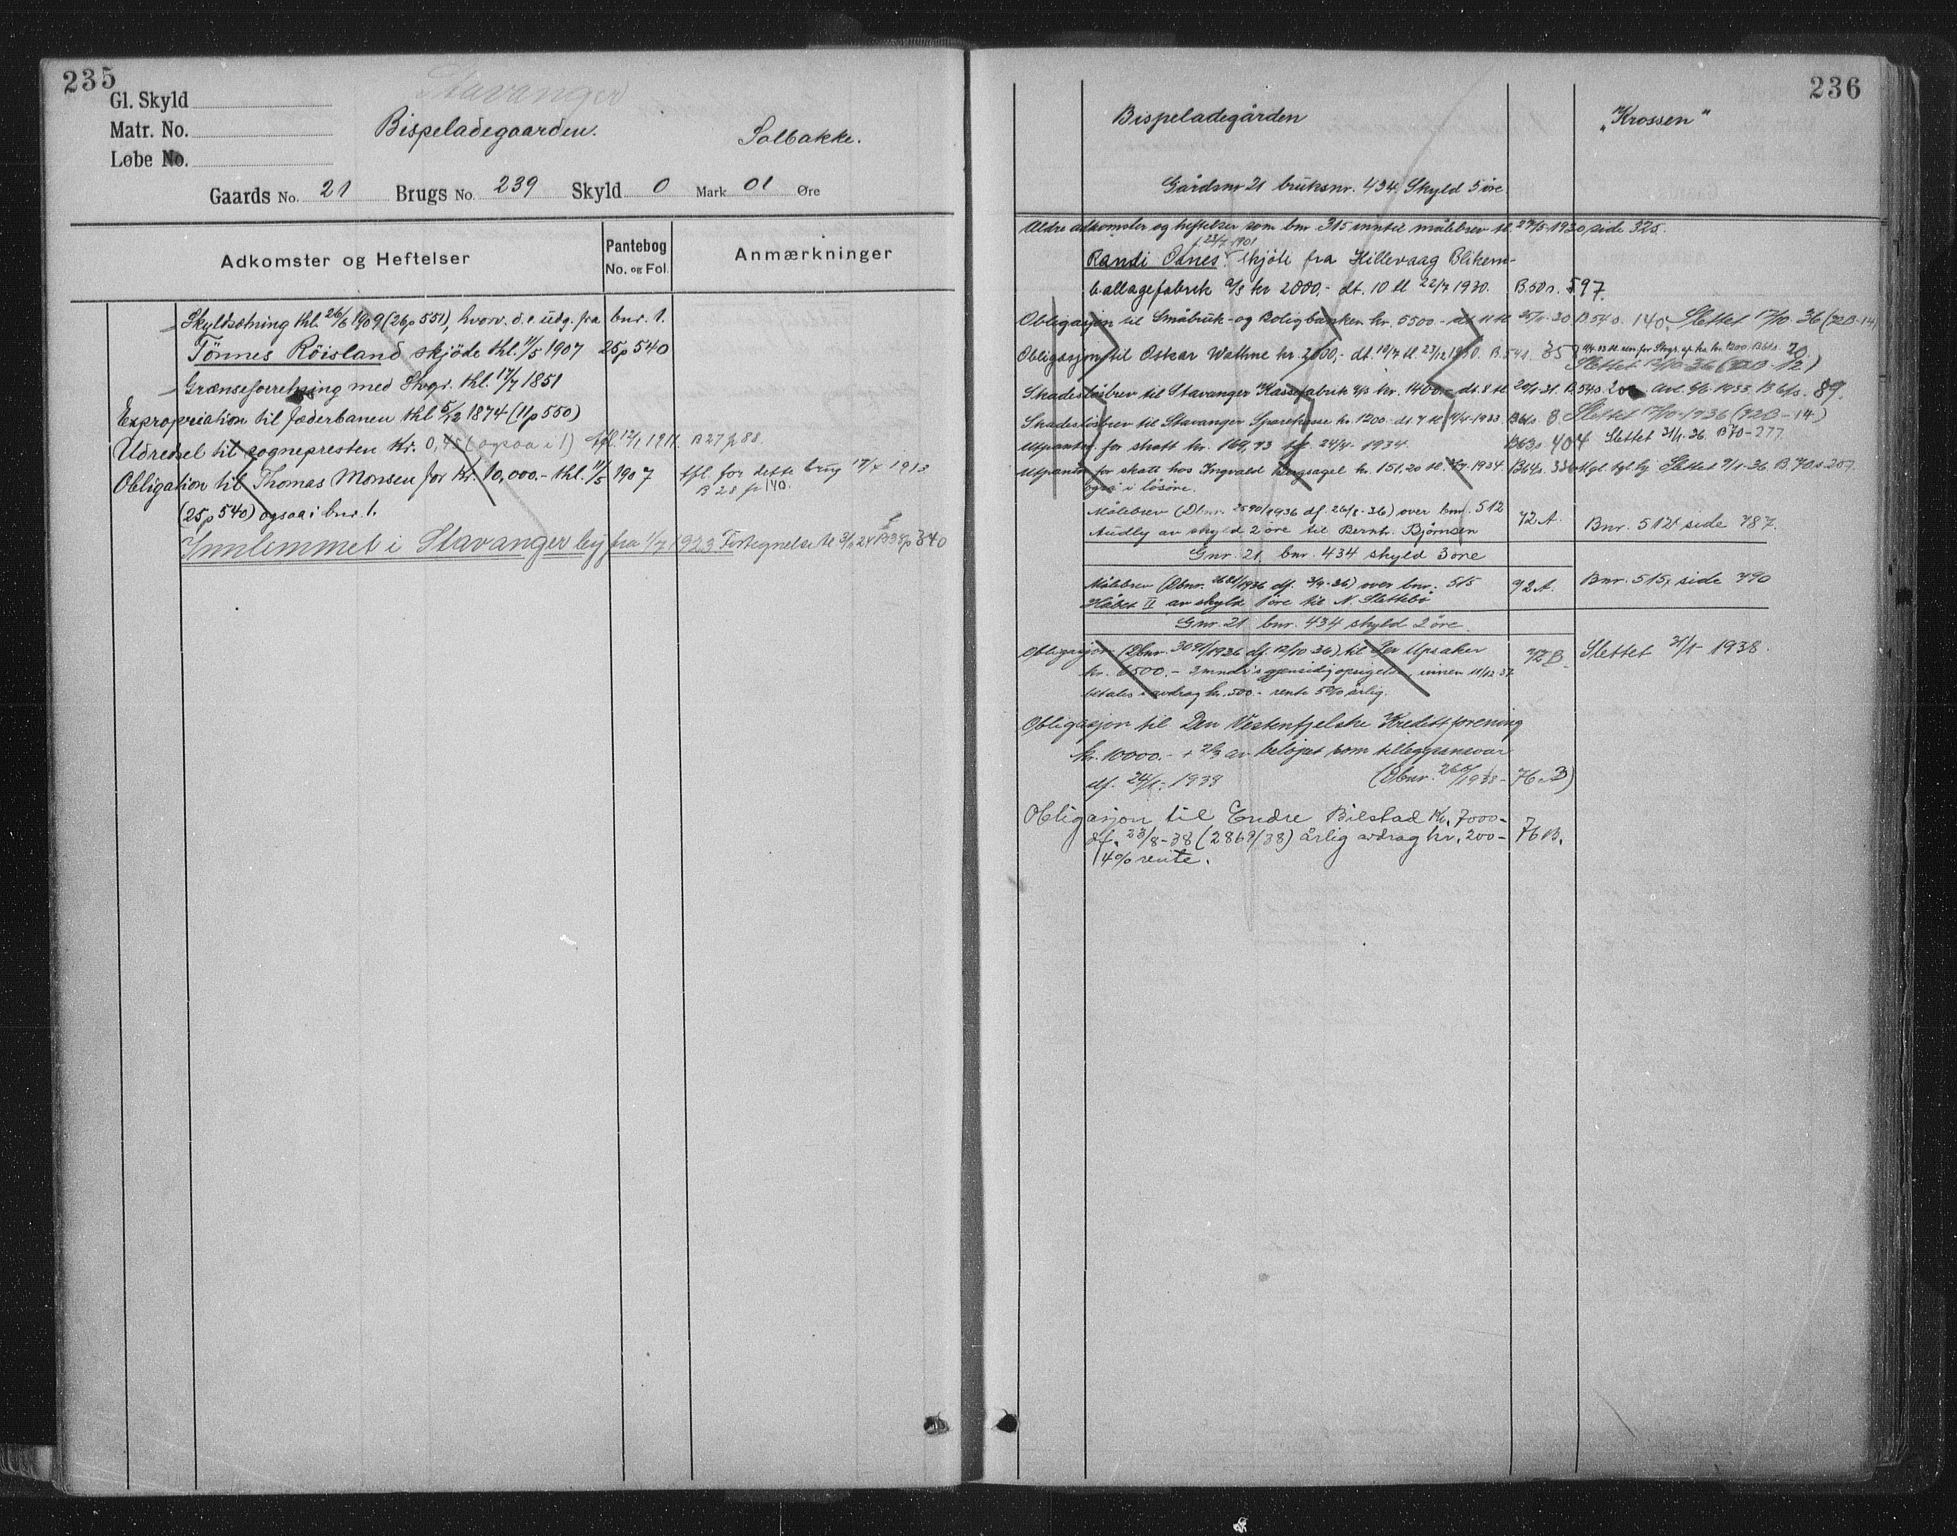 235
Stavanger
Gl. Skyld
Matr. No.
Bispeladegaarden.
Solbakke.
Løbe No.
Gaards No. 21 Brugs No. 239 Skyld 0 Mark 01 Øre
Adkomster og Heftelser
Pantebog No. og Fol.
Anmærkninger
Skyldsætning thl. 26/6 1909 (26p 551), hvorv. d. e. udg. fra bnr. 1.
Tönnes Röisland skjöde thl. 11/5 1907 25p 540
Grænseforretning med Stvgr. thl. 17/7 1851
Expropriation til Jæderbanen thl 5/12 1874 (11p 550)
Udredsel til sognepresten kr. 0,48 (ogsaa i 1) 12/1 1911. B 27 p 88.
Obligation til Thomas Monsen for kr. 10,000.- thl. 11/5 1907
tfl. for dette brug 17/7 1912
B 28 p 140.
(25p 540) ogsaa i bnr. 1.
Innlemmet i Stavanger by fra 1/7 1923 Fortegnelse 24 B 38 p 340
236
Bispeladegården
„Krossen"
Gårdsnr 21 bruksnr. 434. Skyld 5 öre
Aldre adkomster og heftelser som bnr 315 inntil målebrev tl. 27/5-1930 side 325.
f. 23/7 1901
Randi Osnes skjöte fra Hillevaag Blikem-
ballagefabrik a/s kr 2000,- dt. 10 tl 22/7 1930. B. 50 s. 597.
Obligasjon til Småbruk- og Boligbanken kr. 5500.- B 54 s. 140. Slettet 17/10-36 (72B-14)
Obligasjon til Oskar Wathne kr. 2000,- dt. 19/7 tl 23/12 1930. B. 54 s.
Slettet 17/10-36 (72B-12)
Skadeslösbrev til Stavanger Kassefabrik a/s kr. 1400.- dt. 8 tl 20/1-31. B. 54 s. avl. 9/6 1933. B 61 s. 89.
Skadeslösbrev til Stavanger Sparekasse kr. 1200. dt. 7 tl 11/4-1933 B 61 s. 8 Slettet 17/10-1936 (72B-14)
Utpantn. for skatt kr. 169,93 df. 24/4-1934. B 63 s 404 Slettet 31/1-36. B 70-277
Utpantn. for skatt hos Ingvald Bergsagel kr. 151,20 tl. 1934 B 64 s. Slettet 9/1-36 B. 70 s 207.
også i lösöre.
Målebrev (Dbnr. 2590/1936 df. 26/8-36) over bnr. 512
Audly av skyld 2 öre til Bernh. Björnsen
72 A.
Bnr. 512, side 787.
Gnr. 21 bnr. 434 skyld 3 öre
Målebrev (Dbnr. 2681/1936 df. 3/9-36) over bnr. 515
Håbet II av skyld 1 öre til N. Slettebö
72 A.
Bnr. 515, side 790
Gnr. 21. bnr. 434 skyld 2 öre.
Obligasjon (Dbnr. 3091/1936 df. 12/10 36) til Per Upsaker 72 B. Slettet 31/1-1938.
kr. 6500.- 3 mndr's gjensidig opsigelse, innen 11/12-37
betales i avdrag kr. 500.- rente 5% årlig.
Obligasjon til Den Vestenfjelske Kredittforening
kr. 10000.- + 2/3 av belöpet som tilleggsansvar
df. 24/1. 1938 (Dbnr. 268/1938 - 76 B)
Obligasjon til Endre Bilstad kr. 7000-
df. 23/8-38 (2869/38) årlig avdrag kr. 200- 76 B.
4% rente.